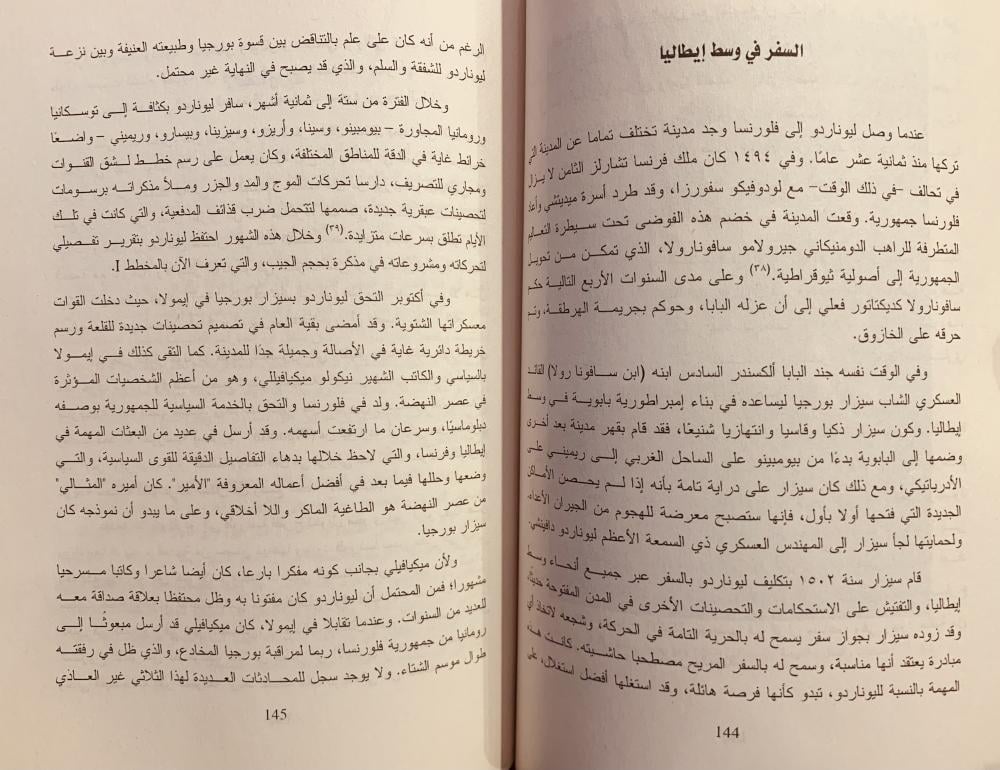 السفر في وسط إيطاليا
عندما وصل ليوناردو إلى فلورنسا وجد مدينة تختلف تماما عن المدينة التي
تركها منذ ثمانية عشر عامًا. وفي ١٤٩٤ كان ملك فرنسا تشارلز الثامن لا يزال
في تحالف -في ذلك الوقت- مع لودوفيكو سفورزا، وقد طرد أسرة ميديتشي وأعاد
فلورنسا جمهورية. وقعت المدينة في خضم هذه الفوضى تحت سيطرة التعاليم
المتطرفة للراهب الدومنيكاني جيرولامو سافونارولا، الذي تمكن من تحويل
الجمهورية إلى أصولية ثيوقراطية.(٣٨) وعلى مدى السنوات الأربع التالية حكم
سافونارولا كديكتاتور فعلي إلى أن عزله البابا، وحوكم بجريمة الهرطقة، وتم
حرقه على الخازوق.
وفي الوقت نفسه جند البابا ألكسندر السادس ابنه (ابن سافونا رولا) القائد
العسكري الشاب سيزار بورجيا ليساعده في بناء إمبراطورية بابوية في وسط
إيطاليا. وكون سيزار ذكيا وقاسيا وانتهازيا شنيعًا، فقد قام بقهر مدينة بعد أخرى
وضمها إلى البابوية بدءًا من بيومبينو على الساحل الغربي إلى ريميني على
الأدرياتيكي، ومع ذلك كان سيزار على دراية تامة بأنه إذا لم يحصن الأماكن
الجديدة التي فتحها أولا بأول، فإنها ستصبح معرضة للهجوم من الجيران الأعداء،
ولحمايتها لجأ سيزار إلى المهندس العسكري ذي السمعة الأعظم ليوناردو دافينشي.
قام سيزار سنة ١٥٠٢ بتكليف ليوناردو بالسفر عبر جميع أنحاء وسط
إيطاليا، والتفتيش على الاستحكامات والتحصينات الأخرى في المدن المفتوحة حديثًا،
وقد زوده سيزار بجواز سفر يسمح له بالحرية التامة في الحركة، وشجعه لاتخاذ أي
مبادرة يعتقد أنها مناسبة، وسمح له بالسفر المريح مصطحبا حاشيته. كانت هذه
المهمة بالنسبة لليوناردو، تبدو كأنها فرصة هائلة، وقد استغلها أفضل استغلال، على
144
الرغم من أنه كان على علم بالتناقض بين قسوة بورجيا وطبيعته العنيفة وبين نزعة
ليوناردو للشفقة والسلم، والذي قد يصبح في النهاية غير محتمل.
وخلال الفترة من ستة إلى ثمانية أشهر، سافر ليوناردو بكثافة إلى توسكانيا
ورومانيا المجاورة – بيومبينو، وسينا، وأريزو، وسيزينا، وبيسارو، وريميني – واضعًا
خرائط غاية في الدقة للمناطق المختلفة، وكان يعمل على رسم خطط لشق القنوات
ومجاري للتصريف، دارسا تحركات الموج والمد والجزر وملأ مذكراته برسومات
لتحصينات عبقرية جديدة، صممها لتتحمل ضرب قذائف المدفعية، والتي كانت في تلك
الأيام تطلق بسرعات متزايدة.(٣٩) وخلال هذه الشهور احتفظ ليوناردو بتقرير تفصيلي
لتحركاته ومشروعاته في مذكرة بحجم الجيب، والتي تعرف الآن بالمخطط I.
وفي أكتوبر التحق ليوناردو بسيزار بورجيا في إيمولا، حيث دخلت القوات
معسكراتها الشتوية. وقد أمضى بقية العام في تصميم تحصينات جديدة للقلعة ورسم
خريطة دائرية غاية في الأصالة وجميلة جدًا للمدينة. كما التقى كذلك في إيمولا
بالسياسي والكاتب الشهير نيكولو ميكيافيللي، وهو من أعظم الشخصيات المؤثرة
في عصر النهضة. ولد في فلورنسا والتحق بالخدمة السياسية للجمهورية بوصفه
دبلوماسيًا، وسرعان ما ارتفعت أسهمه. وقد أرسل في عديد من البعثات المهمة في
إيطاليا وفرنسا، والتي لاحظ خلالها بدهاء التفاصيل الدقيقة للقوى السياسية، والتي
وضعها وحللها فيما بعد في أفضل أعماله المعروفة "الأمير". كان أميره "المثالي"
من عصر النهضة هو الطاغية الماكر واللا أخلاقي، وعلى ما يبدو أن نموذجه كان
سيزار بورجيا.
ولأن ميكيافيلي بجانب كونه مفكرا بارعا، كان أيضا شاعرا وكاتبا مسرحيا
مشهورا؛ فمن المحتمل أن ليوناردو كان مفتونا به وظل محتفظا بعلاقة صداقة معه
للعديد من السنوات. وعندما تقابلا في إيمولا، كان ميكيافيلي قد أرسل مبعوثًا إلى
رومانيا من جمهورية فلورنسا، ربما لمراقبة بورجيا المخادع، والذي ظل في رفقته
طوال موسم الشتاء. ولا يوجد سجل للمحادثات العديدة لهذا الثلاثي غير العاذي
145